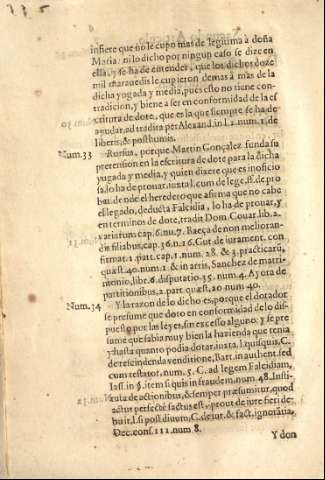 infiere que no le cupo mas de legitima à doña
Maria: ni lo dicho por ningun caso se dize en
ella, y se ha de entender, que los dichos doze
mil marauedis le cupieron demas à mas de la
dicha yogada y media, pues esto no tiene con-
tradicion, y biene a ser en conformidad de la es
critura de dote, que es la que siempre se ha de
ayudar, ad tradita per Alexand. in l. 2. num. 1. de
liberis, & posthumis.
Num. 33 Rursus, porque Martin Gonçalez funda su
pretension en la escritura de dote para la dicha
yugada y media, y quien dize que es inoficio
sa, lo ha de prouar, iuxta l. cum de lege, ff. de pro
bat. donde el heredero que afirma que no cabe
el legado, deducta Falcidia, lo ha de prouar, y
en terminos de dote, tradit Dom Couar. lib. 2.
variarum cap. 6. nu. 7. Baeça de non melioran-
dis filiabus, cap. 36. n. 16. Gut. de iurament. con
firmat. 1. part. cap. 1. num. 28. & 3. practicarū,
quæst. 40. num. 2. & in arris, Sanchez de matri-
monio, libr. 6. disputatio. 35. num. 4. & Ayora de
partitionibus, 2. part. quæst. 20. num. 40.
Num. 34 Y la razon de lo dicho es, porque el dotador
se presume que doto en conformidad de lo dis-
puesto por las leyes, sin excesso alguno, y se pre
sume que sabia muy bien la hazienda que tenia
y hasta quanto podia dotar, iuxta l. quisquis, C.
de rescindenda venditione, Bart. in authent. sed
cum testator, num. 5. C. ad legem Falcidiam,
Iass. in §. item si quis in fraudem, num. 48. Insti-
tuta de actionibus, & semper præsumitur, quod
actus perfectè factus est, prout de iure fieri de-
buit, l. si post diuum, C. de iur. & fact. ignorātia,
Dec. cons. 111. num 8.
Y don